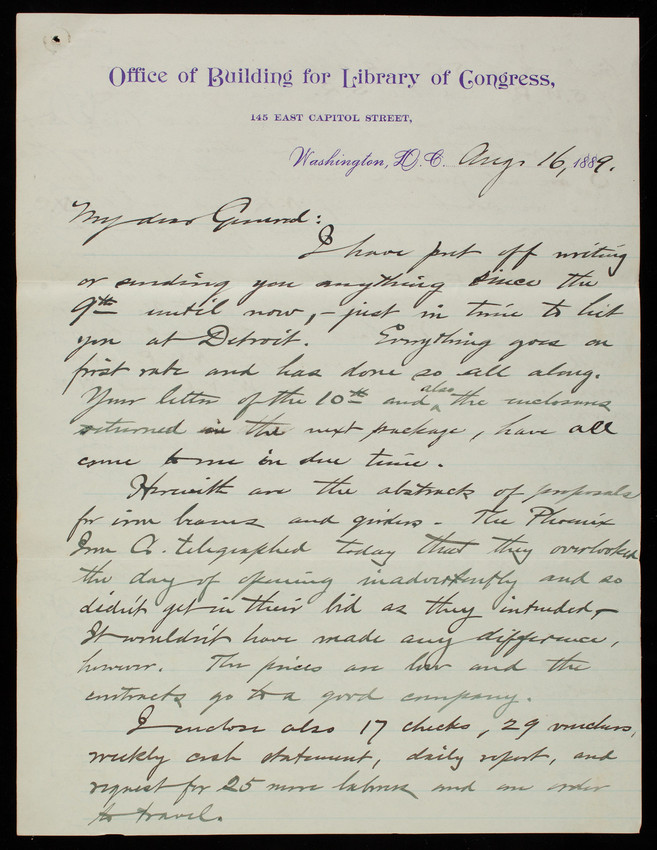 Office of Building for Library of Congress,
145 EAST CAPITOL STREET,
Washington, D. C. Aug. 16, 1889.
My dear General:
I have put off writing
or sending you anything since the
9th until now, - just in time to hit
you at Detroit. Everything goes on
first rate and has done so all along.
Your letter of the 10th and also the enclosures
returned in the next package, have all
come to me in due time.
Herewith are the abstracts of proposals
for iron beams and girders - The Phoenix
Iron Co. telegraphed today that they overlooked
the day of opening inadvertently and so
didn't get in their bid as they intended -
It wouldn't have made any difference,
however. The prices are low and the
contracts go to a good company.
I enclose also 17 checks, 29 vouchers,
weekly cash statement, daily report, and
request for 25 more laborers and an order
to travel.